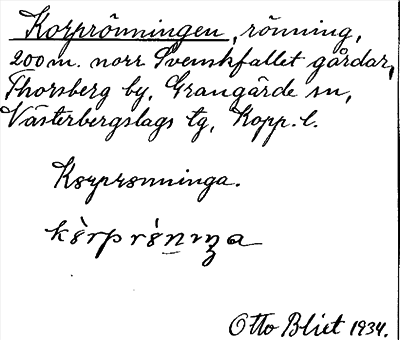 Korprönningen, rönning,
200 m. norr Svenskfallet gårdar,
Thorsberg by, Grangärde sn,
Västerbergslags tg, Kopp. l.
Korprönninga.
kòrprǿnıŋa
Otto Blixt 1934.